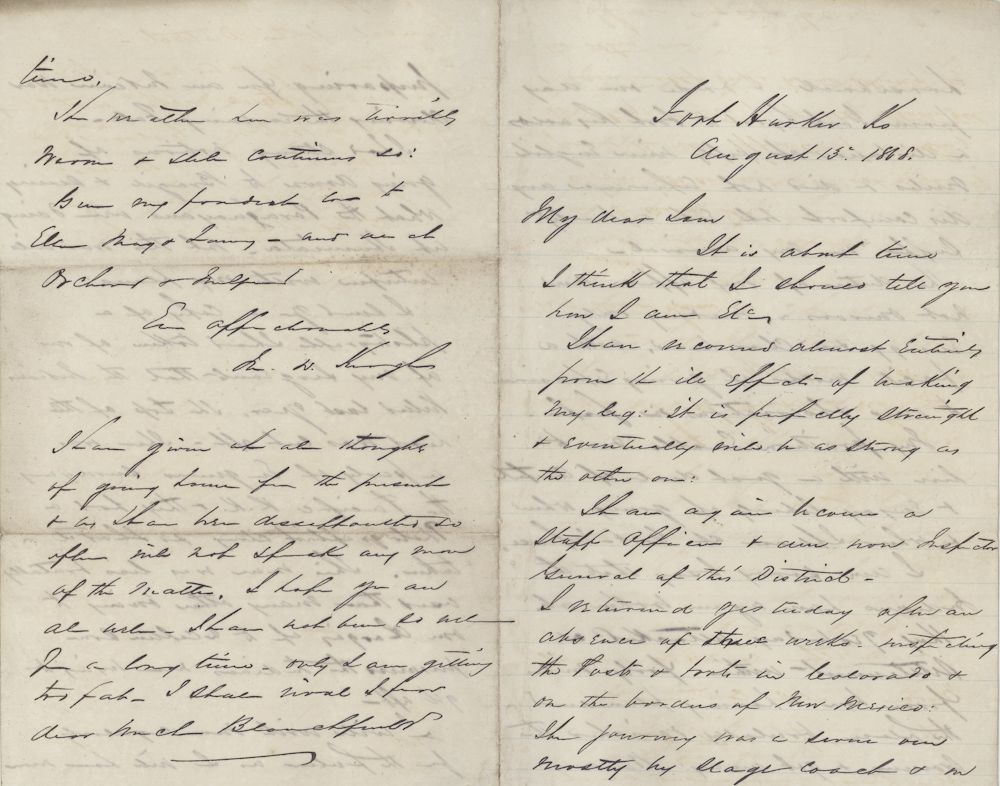 time.
The weather here was terribly
warm & still continues so:
Give my fondest love to
Ellen Mag & Fanny - and all at
Orchard & Milford
Ever affectionately
M. W. Keogh
I have given up all thoughts
of going home for the present
& as I have been dissappointed so
often will not speak any more
of the matter. I hope you are
all well - I have not been so well
for a long time - only I am getting
too fat - I shall rival I fear
dear uncle Blanchfield
Fort Harker Ks
August 15th 1868.
My dear Tom
It is about time
I think that I should tell you
how I am Etc,
I have recovered almost Entirely
from the ill Effects of breaking
my leg: it is perfectly straight
& Eventually will be as strong as
the other one:
I have again become a
Staff Officer & am now Inspector
General of this District -
I returned yesterday after an
absence of three weeks - inspecting
the Posts & Forts in Colorado &
on the borders of New Mexico:
The journey was a severe one
mostly by stage coach & on